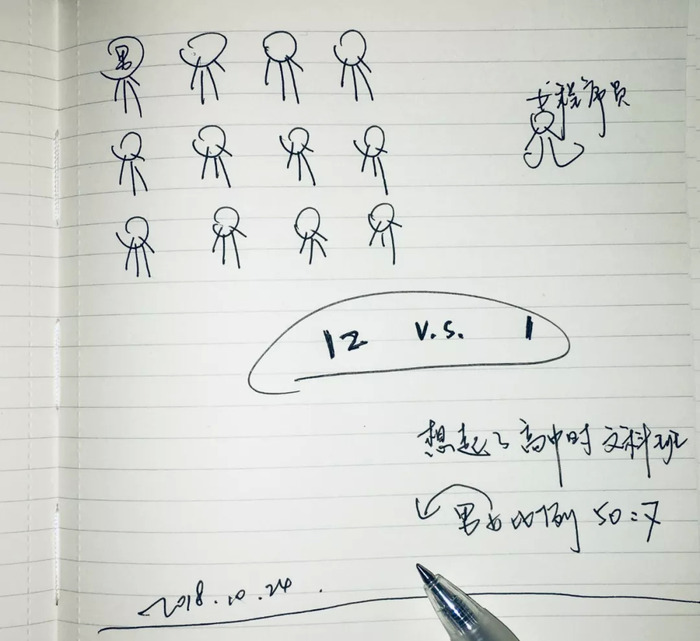 男
女程序员
12 v.s. 1
想起了高中时文科班
男女比例 50:7
2018.10.24.